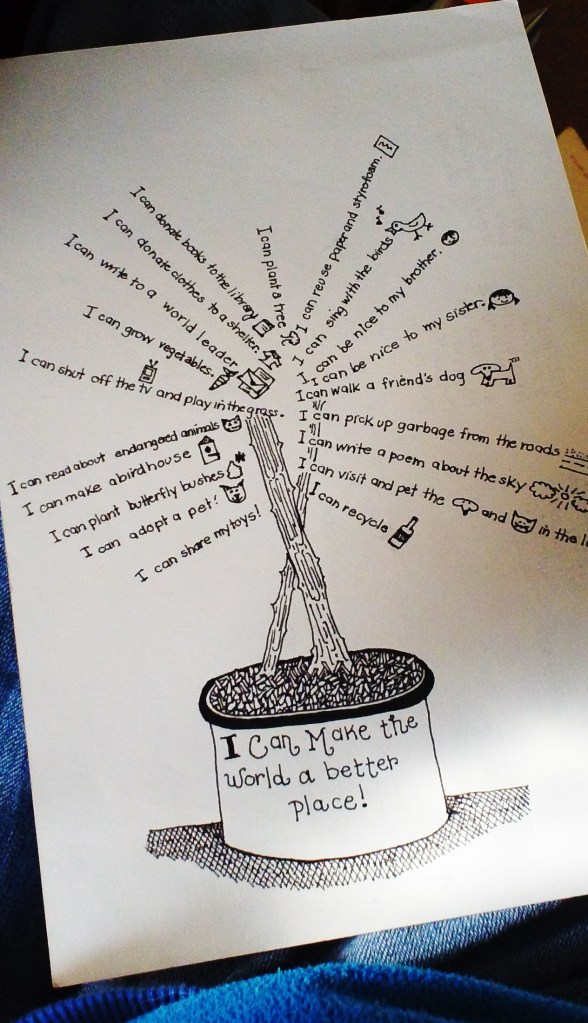 I can share my toys!
I can adopt a pet!
I can plant butterfly bushes
I can make a birdhouse
I can read about endangered animals
I can shut off the TV and play in the grass.
I can grow vegetables.
I can write to a world leader
I can donate clothes to a shelter.
I can donate books to the library
I can plant a tree
I can reuse paper and styrofoam.
I can sing with the birds
I can be nice to my brother.
I can be nice to my sister.
I can walk a friend's dog
I can pick up garbage from the roads
I can write a poem about the sky
I can visit and pet the and in the
I can recycle
I Can Make the
world a better
place!